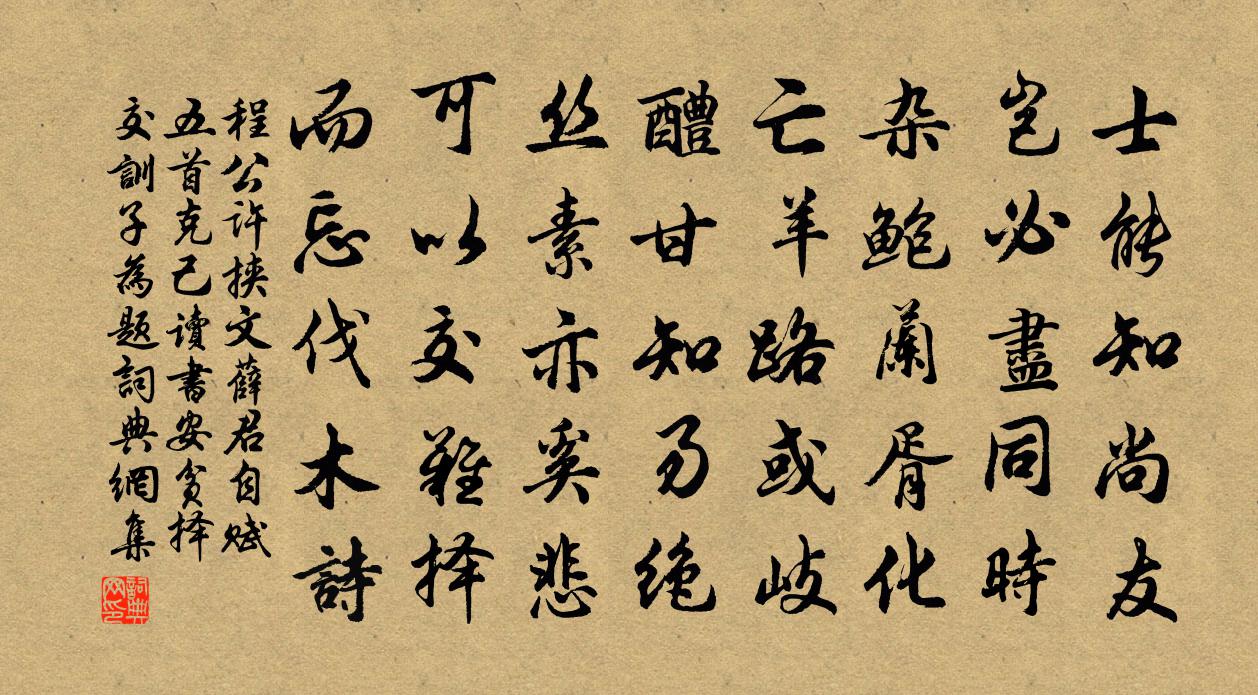 士能知尚友
岂必盡同時
杂鲍蘭胥化
亡羊路或岐
醴甘知易绝
丝素亦奚悲
可以交難择
而忘伐木詩
程公许挟文薛君自赋
五首克己讀書安贫择
交訓子為题詞典網集
詞典网印